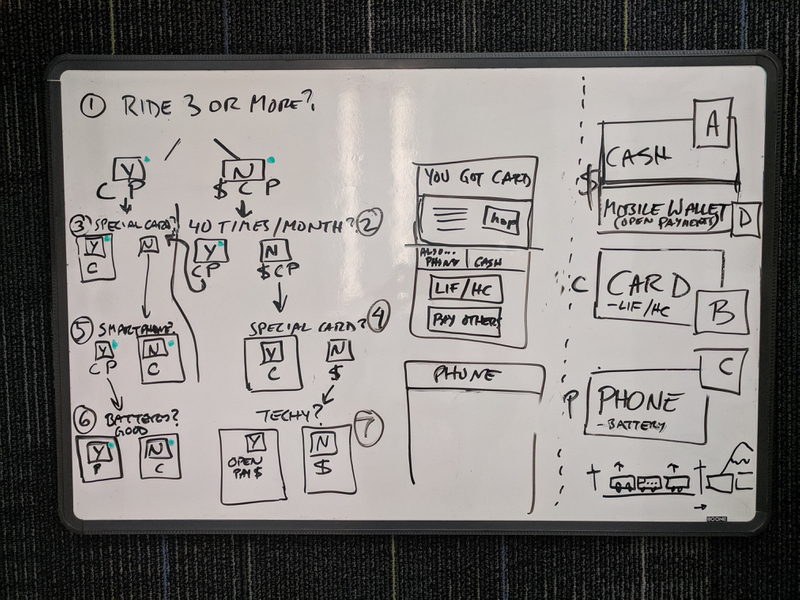 ① RIDE 3 OR MORE?
Y N
C P $ C P
③ SPECIAL CARD? 40 TIMES/MONTH? ②
Y N Y N
C CP $CP
⑤ SMARTPHONE? SPECIAL CARD? ④
Y N Y N
C P C C $
⑥ BATTERY? TECHY? ⑦
GOOD
Y N Y N
P C OPEN $
PAY $
YOU GOT CARD
HOP
ALSO...
PHONE CASH
LIF/HC
PAY OTHERS
PHONE
A
CASH
$
MOBILE WALLET
(OPEN PAYMENTS) D
C CARD
-LIF/HC
B
C
P PHONE
-BATTERY